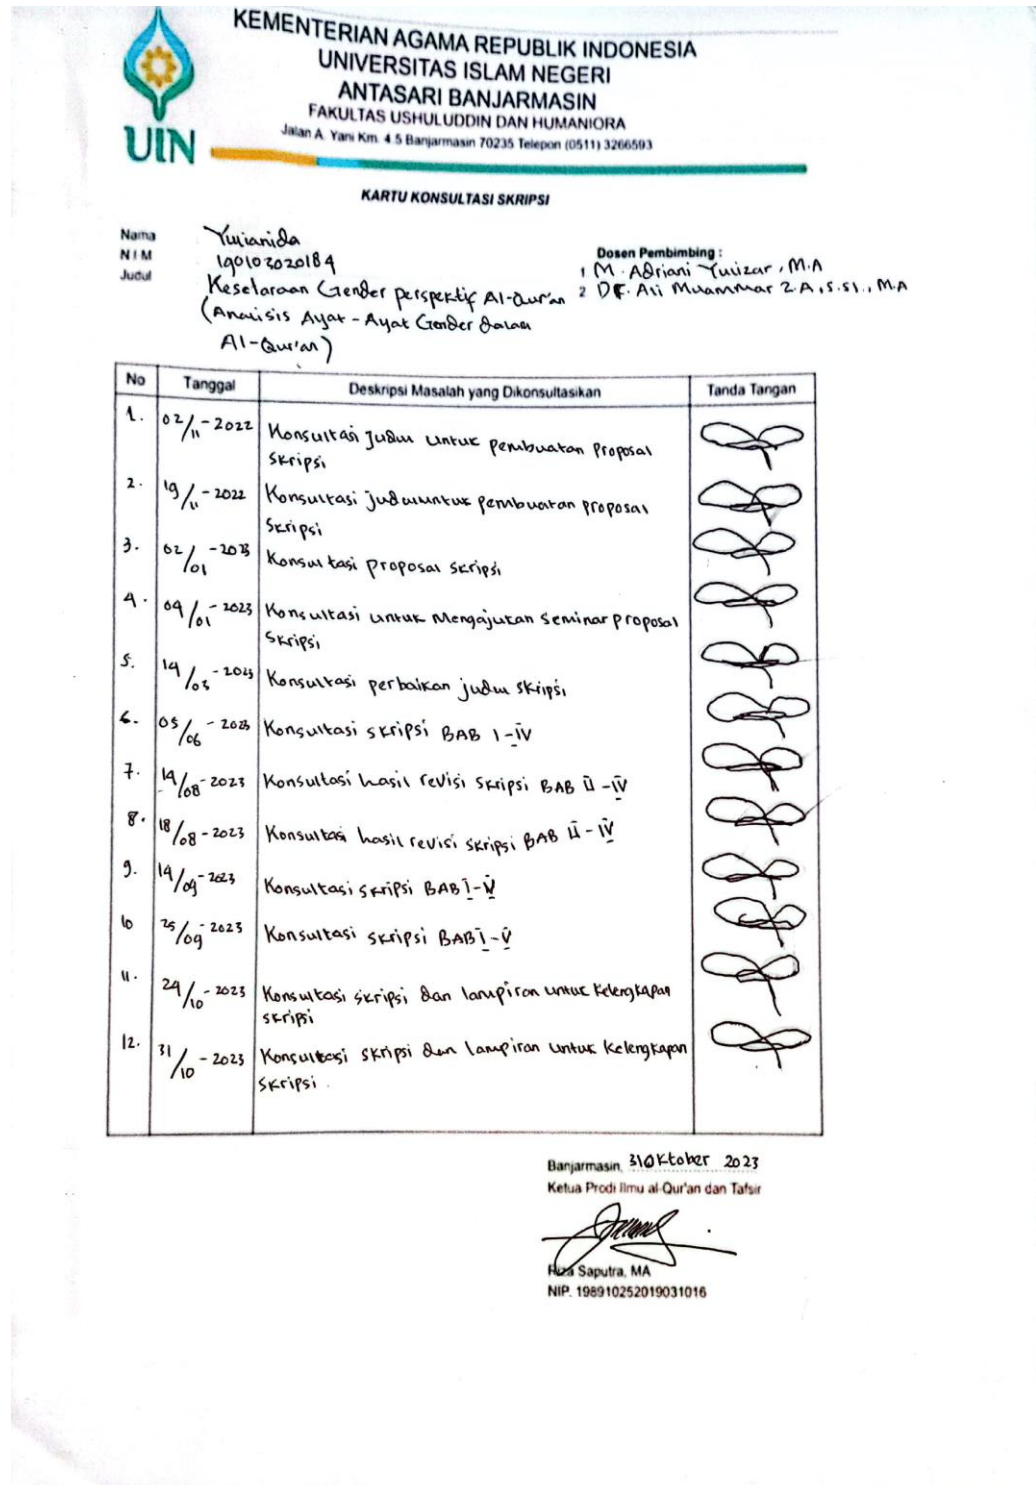 KEMENTERIAN AGAMA REPUBLIK INDONESIA
UNIVERSITAS ISLAM NEGERI
ANTASARI BANJARMASIN
FAKULTAS USHULUDDIN DAN HUMANIORA
Jalan A. Yani Km. 4.5 Banjarmasin 70235 Telepon (0511) 3266593
UIN
KARTU KONSULTASI SKRIPSI
Nama Yulianida
NIM 190103020184
Judul Keselaraan Gender perspektif Al-Qur'an
(Analisis Ayat-Ayat Gender dalam
Al-Qur'an)
Dosen Pembimbing :
1 M. Adriani Yulizar, M.A
2 Dr. Ali Muammar Z.A, S.SI., M.A
No Tanggal Deskripsi Masalah yang Dikonsultasikan Tanda Tangan
1. 02/11-2022 Konsultasi Judul untuk pembuatan Proposal
Skripsi
2. 19/11-2022 Konsultasi judul untuk pembuatan proposal
Skripsi
3. 02/01-2023 Konsultasi proposal skripsi
4. 04/01-2023 Konsultasi untuk Mengajukan Seminar Proposal
Skripsi
5. 14/03-2023 Konsultasi perbaikan judul skripsi
6. 05/06-2023 Konsultasi skripsi BAB I-IV
7. 14/08-2023 Konsultasi hasil revisi skripsi BAB II-IV
8. 18/08-2023 Konsultasi hasil revisi skripsi BAB II-IV
9. 14/09-2023 Konsultasi skripsi BAB I-V
10 25/09-2023 Konsultasi skripsi BAB I-V
11. 24/10-2023 Konsultasi skripsi dan lampiran untuk Kelengkapan
skripsi
12. 31/10-2023 Konsultasi skripsi dan lampiran untuk Kelengkapan
skripsi.
Banjarmasin, 31 Oktober 2023
Ketua Prodi Ilmu al-Qur'an dan Tafsir
Riza Saputra, MA
NIP. 198910252019031016